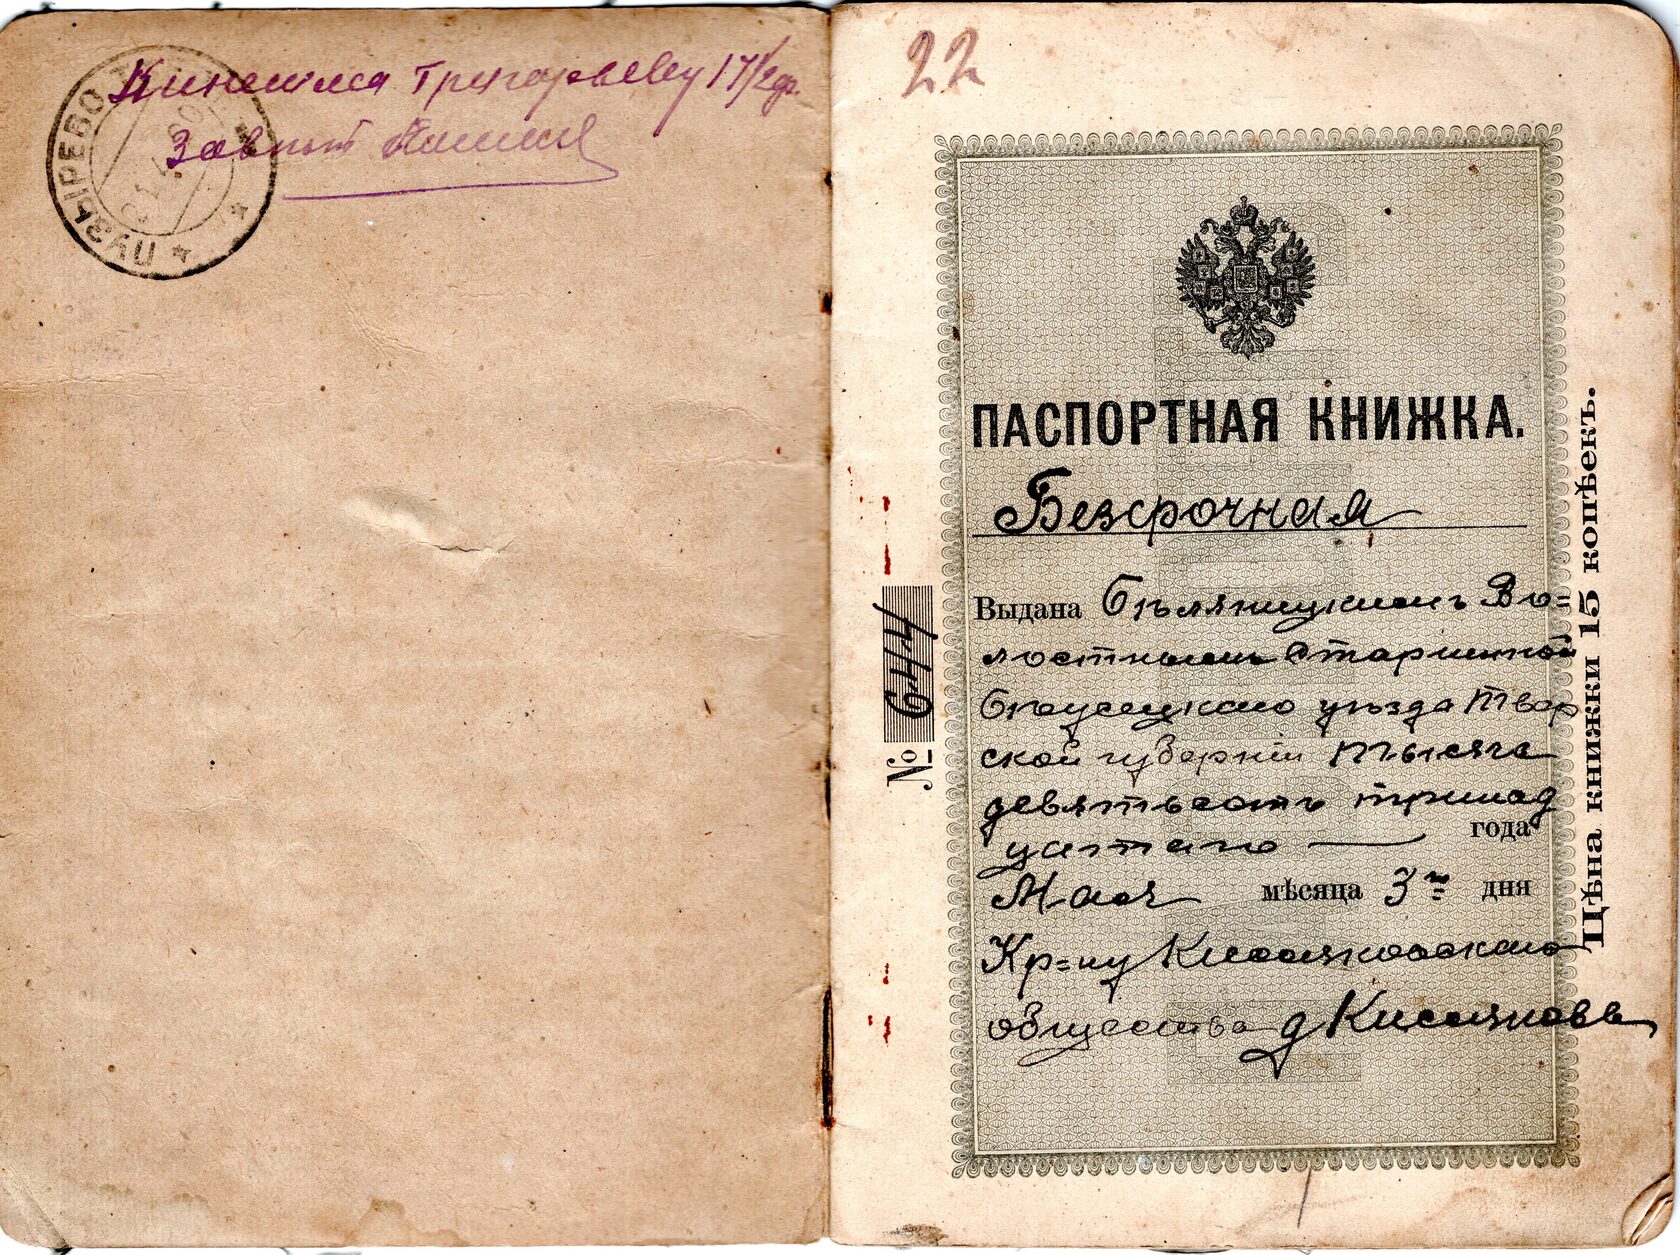 Кинешма Григорьеву 17/2
ПУЗЫРЕВО
22
ПАСПОРТНАЯ КНИЖКА.
Безсрочная
№ 644
Выдана Бѣляницкимъ Во=
лостнымъ Старшиной
Бѣжецкаго уѣзда Твер
ской губерніи Тысяча
девятьсотъ тринад
цатаго года
Мая мѣсяца 3 дня
Кр=ну
общества д
Цѣна книжки 15 копѣекъ.